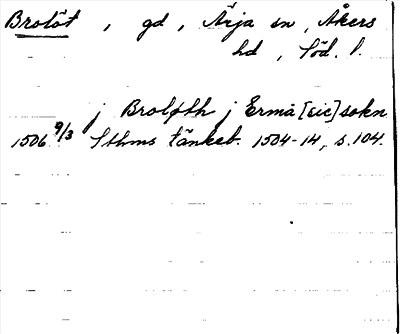 Brolöt, gd, Ärja sn, Åkers
hd, Söd. l.
j Broløth j Ermä [sic] sokn
1506 9/3 Sthms tänkeb. 1504-14, s. 104.